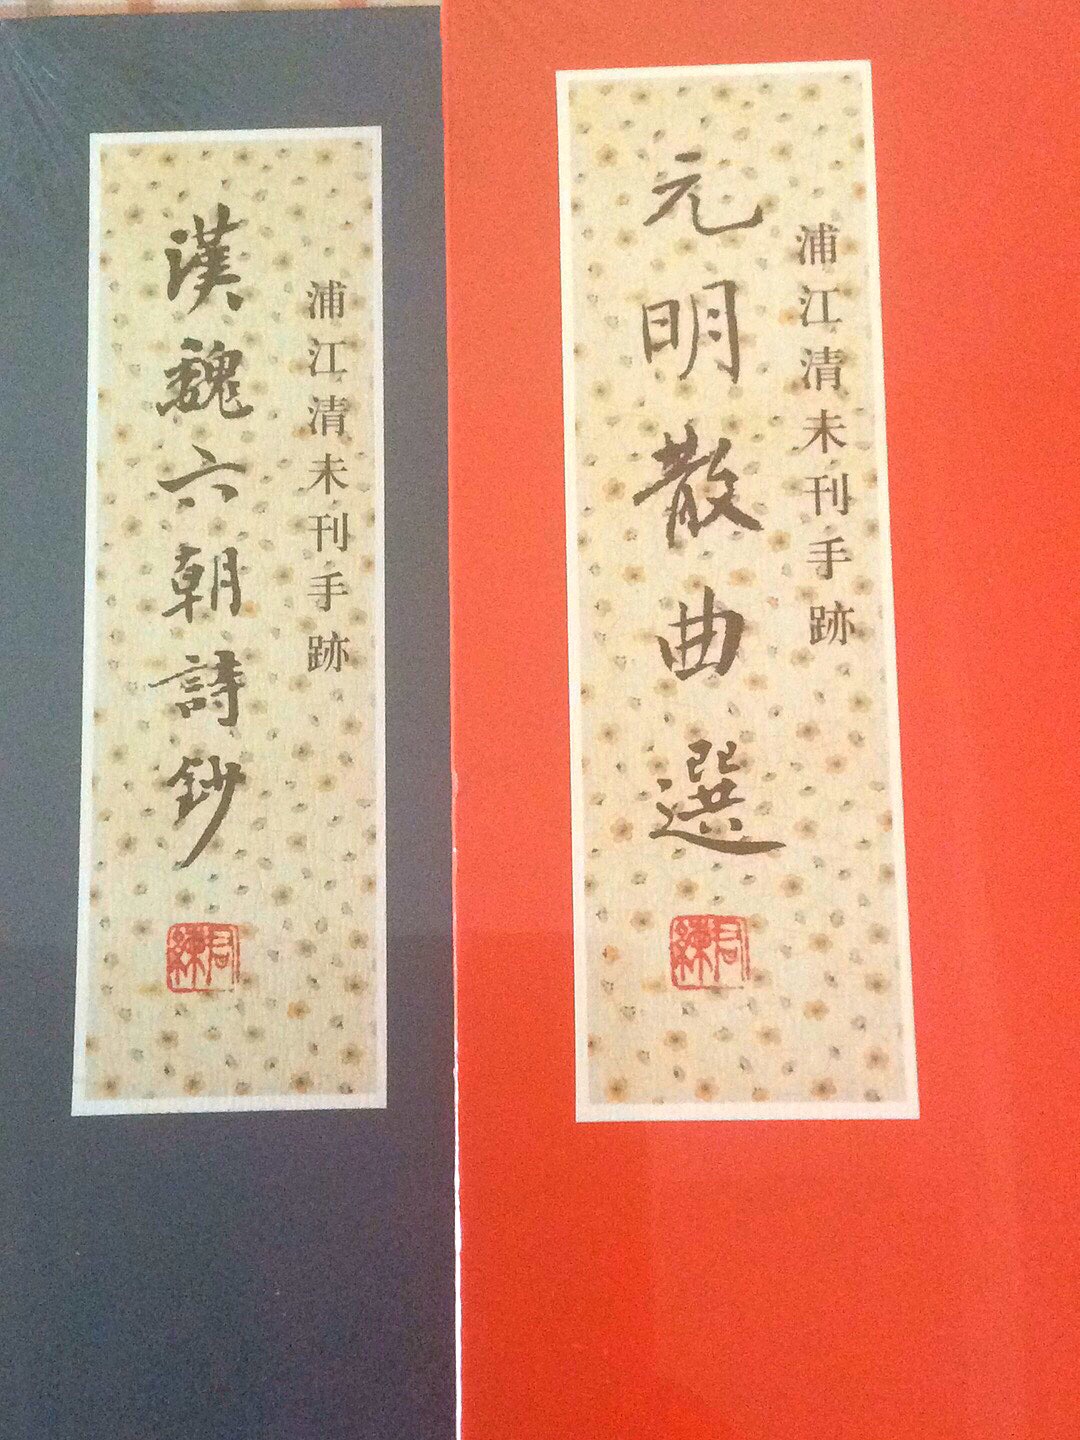 浦江清未刊手跡
漢魏六朝詩鈔
君練
浦江清未刊手跡
元明散曲選
君練